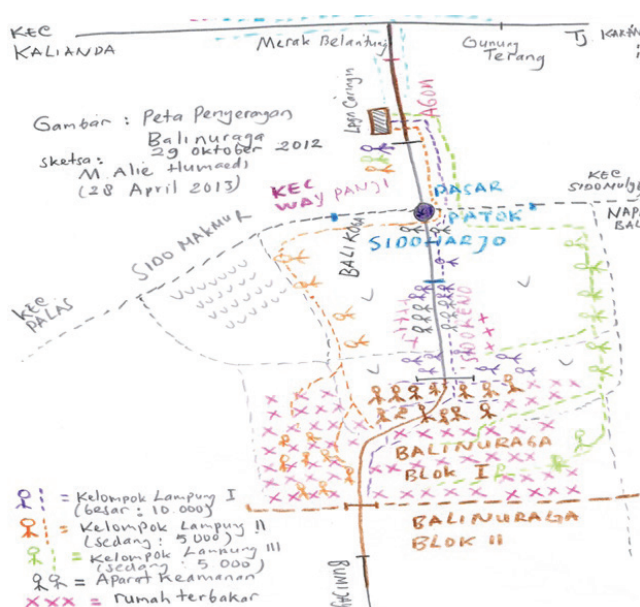 KEC
KALIANDA
Merak Belantung
Gunung
Terang
TJ
AGOM
Gambar : Peta Penyerangan
Balinuraga
29 Oktober 2012
sketsa :
M. Alie Humaedi
(28 April 2013)
KEC
WAY PANJI
PASAR
PATOK
KEC
SIDOHARJO
SIDO MAKMUR
BALIKOGA
KEC
PALAS
SIDORENO
BALINURAGA
BLOK I
BALINURAGA
BLOK II
= Kelompok Lampung I
(besar : 10.000)
= Kelompok Lampung II
(sedang : 5000)
= Kelompok Lampung III
(sedang : 5.000)
= Aparat Keamanan
xxx = rumah terbakar